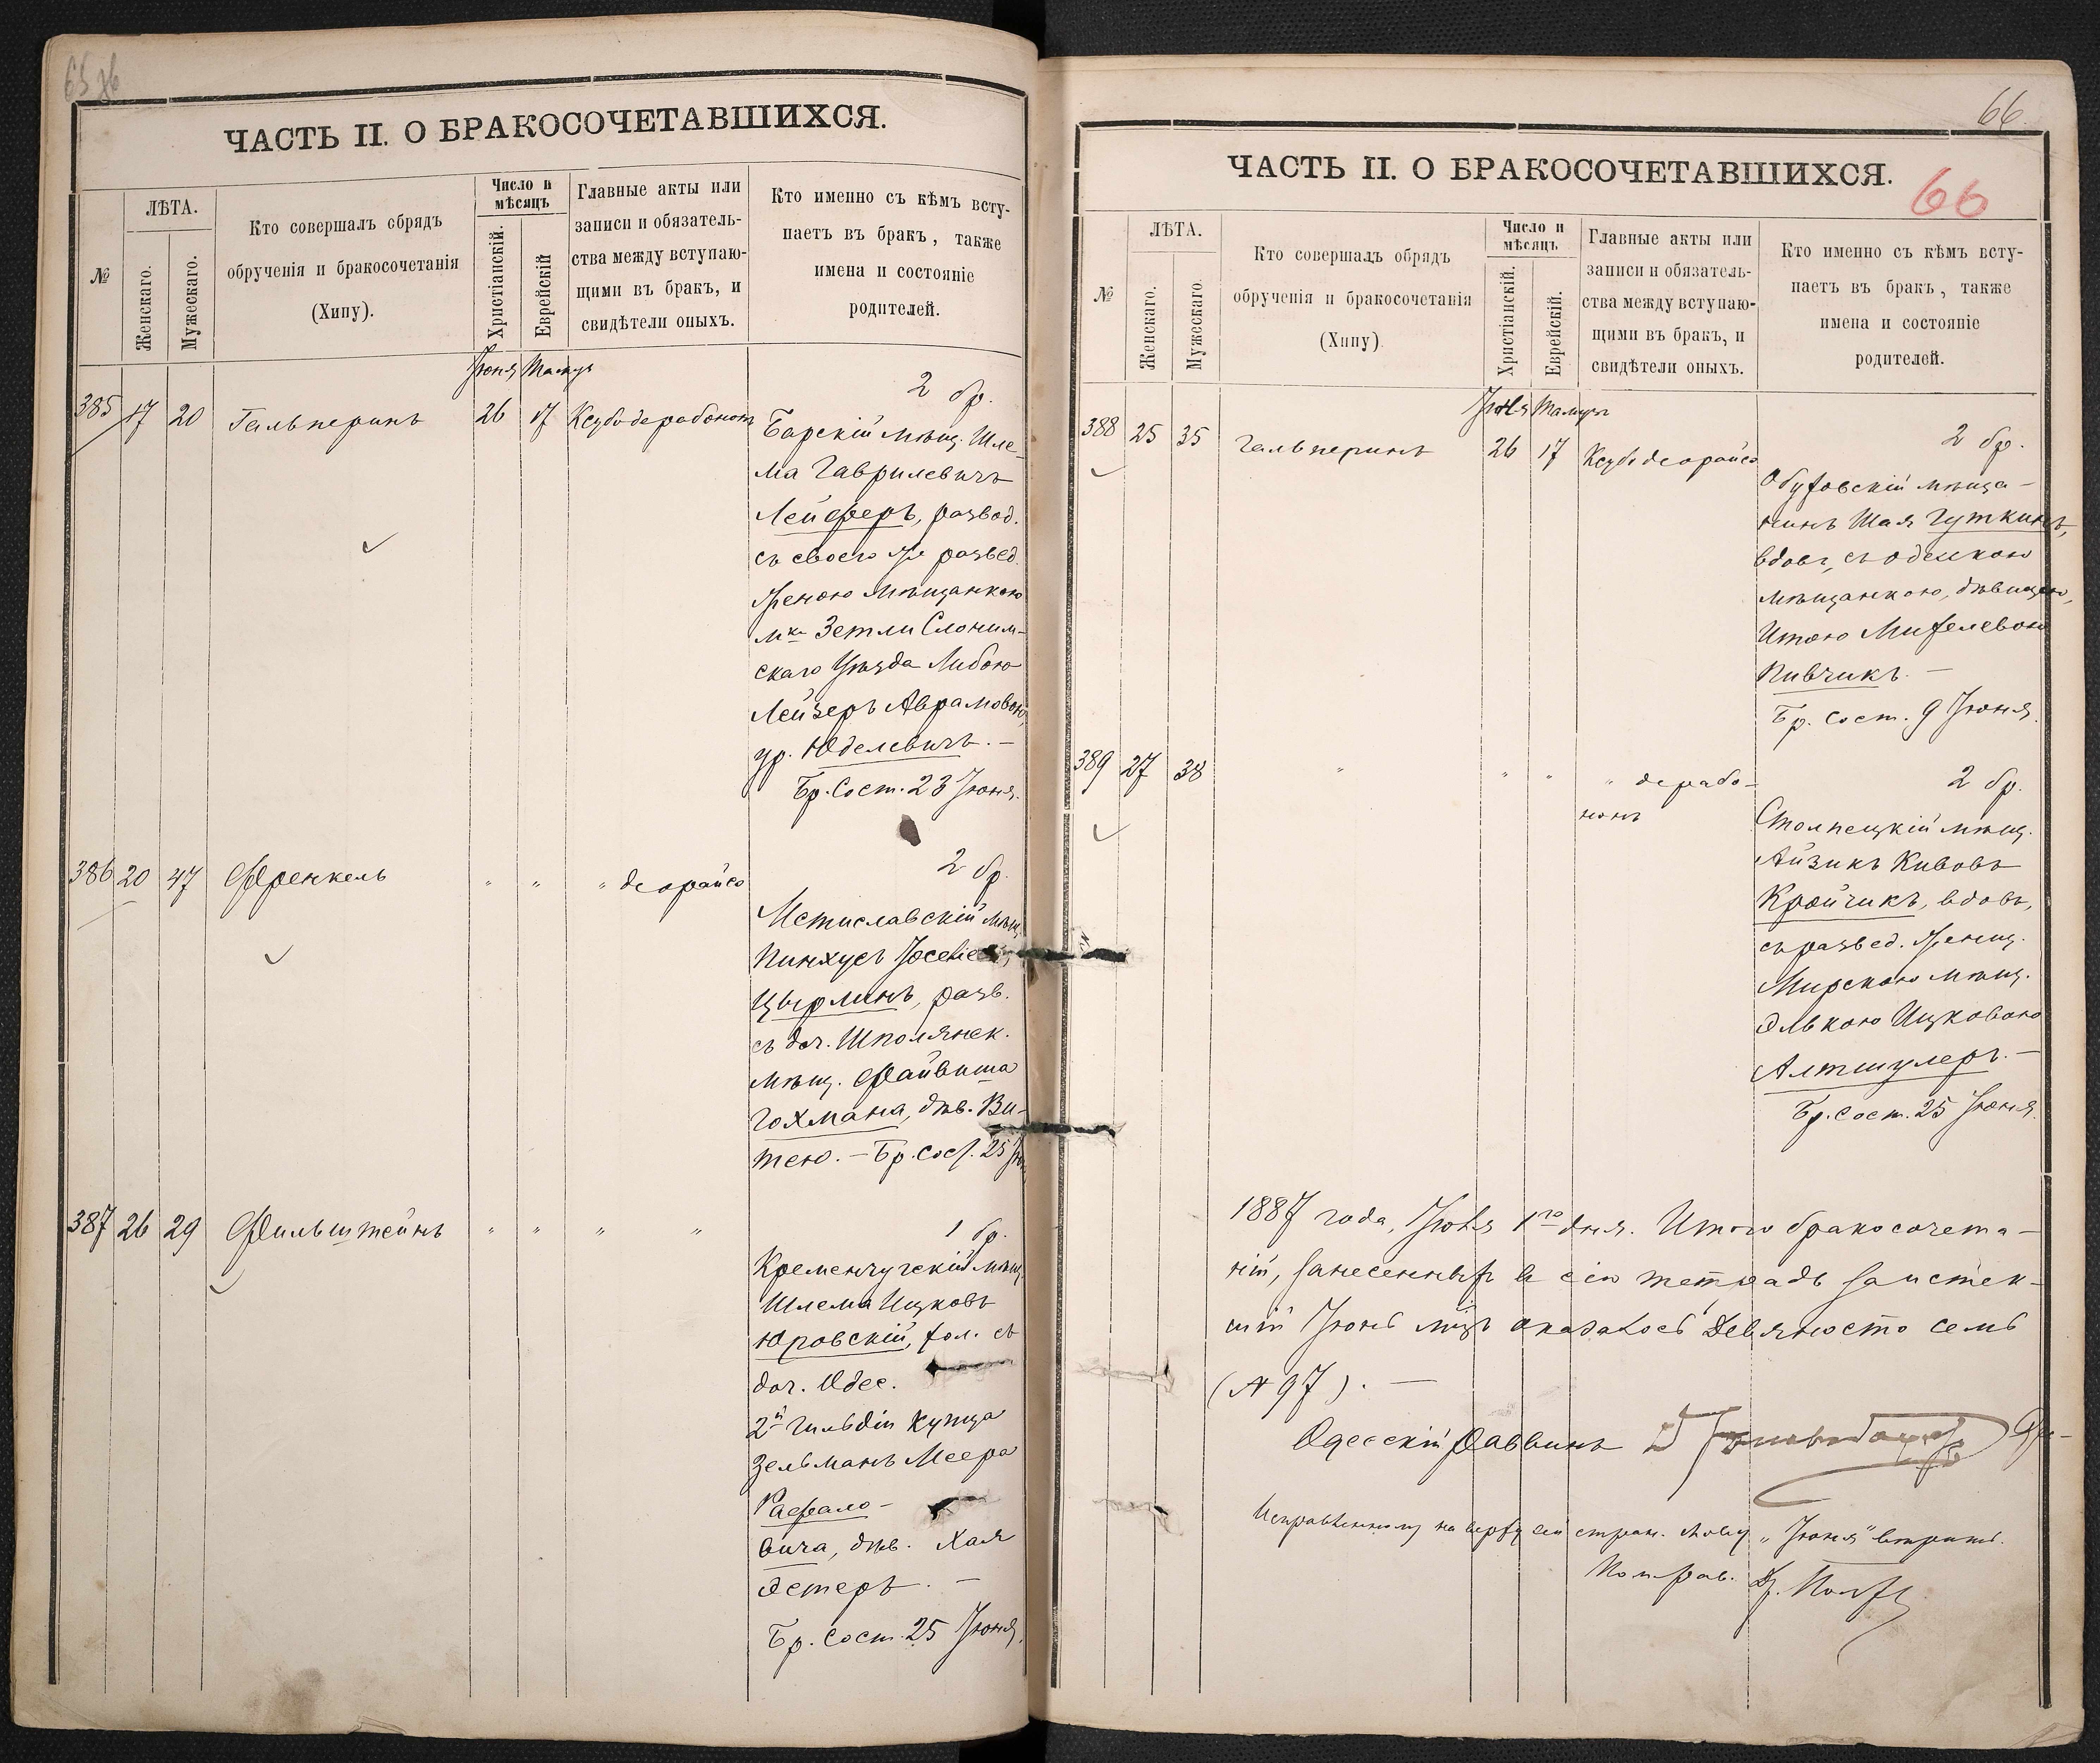 ЧАСТЬ II. О БРАКОСОЧЕТАВШИХСЯ.
№
ЛѢТА.
Женскаго.
Мужескаго.
Кто совершалъ обрядъ
обрученія и бракосочетанія
(Хипу).
Число и
мѣсяцъ
Христіанскій.
Еврейскій
Главные акты или
записи и обязатель-
ства между вступаю-
щими въ бракъ, и
свидѣтели оныхъ.
Кто именно съ кѣмъ всту-
паетъ въ бракъ, также
имена и состояніе
родителей.
Іюня Тамуз
385 17 20 Гальперинъ 26 17 Ксубо дерабонон
2 бр.
Барскій мѣщ. Шле-
ма Гаврилевичъ
Лейферъ, развод.
съ своею же развед.
женою мѣщанкою
мка Зетли Слоним-
скаго Уѣзда Либою
Лейзеръ Аврамовою
ур. Юделевичъ. –
Бр. Сост. 23 Іюня.
386 20 47 Френкель " " " деорайсо
2 бр.
Мстиславскій мѣщ.
Пинхусъ
Цырлинъ, разв.
съ доч. Шполянск.
мѣщ. Файвиша
Гохмана, дѣв. Ви-
тею. – Бр. Сост. 25
387 26 29 Фильштейнъ " " " "
1 бр.
Кременчугскій мѣщ.
Шлема Ицковъ
Юровскій, хол. съ
доч. Одес.
2й гильдіи купца
Зельманъ Меера
Рафало-
вича, дѣв. Хая
Эстеръ. –
Бр. Сост. 25 Іюня.
66
ЧАСТЬ II. О БРАКОСОЧЕТАВШИХСЯ.
66
№
ЛѢТА.
Женскаго.
Мужескаго.
Кто совершалъ обрядъ
обрученія и бракосочетанія
(Хипу)
Число и
мѣсяцъ
Христіанскій.
Еврейскій.
Главные акты или
записи и обязатель-
ства между вступаю-
щими въ бракъ, и
свидѣтели оныхъ.
Кто именно съ кѣмъ всту-
паетъ въ бракъ, также
имена и состояніе
родителей.
Іюня Тамузъ
388 25 35 Гальперинъ 26 17 Ксубо деорайсо
2 бр.
Обуховскій мѣща-
нинъ Шая Гуткинъ,
вдовъ, съ одесскою
мѣщанкою, дѣвицею,
Итою Михелевою
Пивчикъ. –
Бр. Сост. 9 Іюня.
389 27 38 " " " " дерабо-
нонъ
2 бр.
Столпецкій мѣщ.
Айзикъ Кивовъ
Кройчикъ, вдовъ,
съ развед. женщ.
Мирскою мѣщ.
Элькою Ицковою
Алтшулеръ. –
Бр. Сост. 25 Іюня.
1887 года, Іюля 1го дня. Итого бракосочета-
ній, занесенныхъ въ сію тетрадь за истек-
шій Іюнь мѣцъ оказалось Девяносто семь
(№ 97). –
Одесскій Раввинъ
Исправленному на верху сей стран. слову „Іюня" вѣрить.